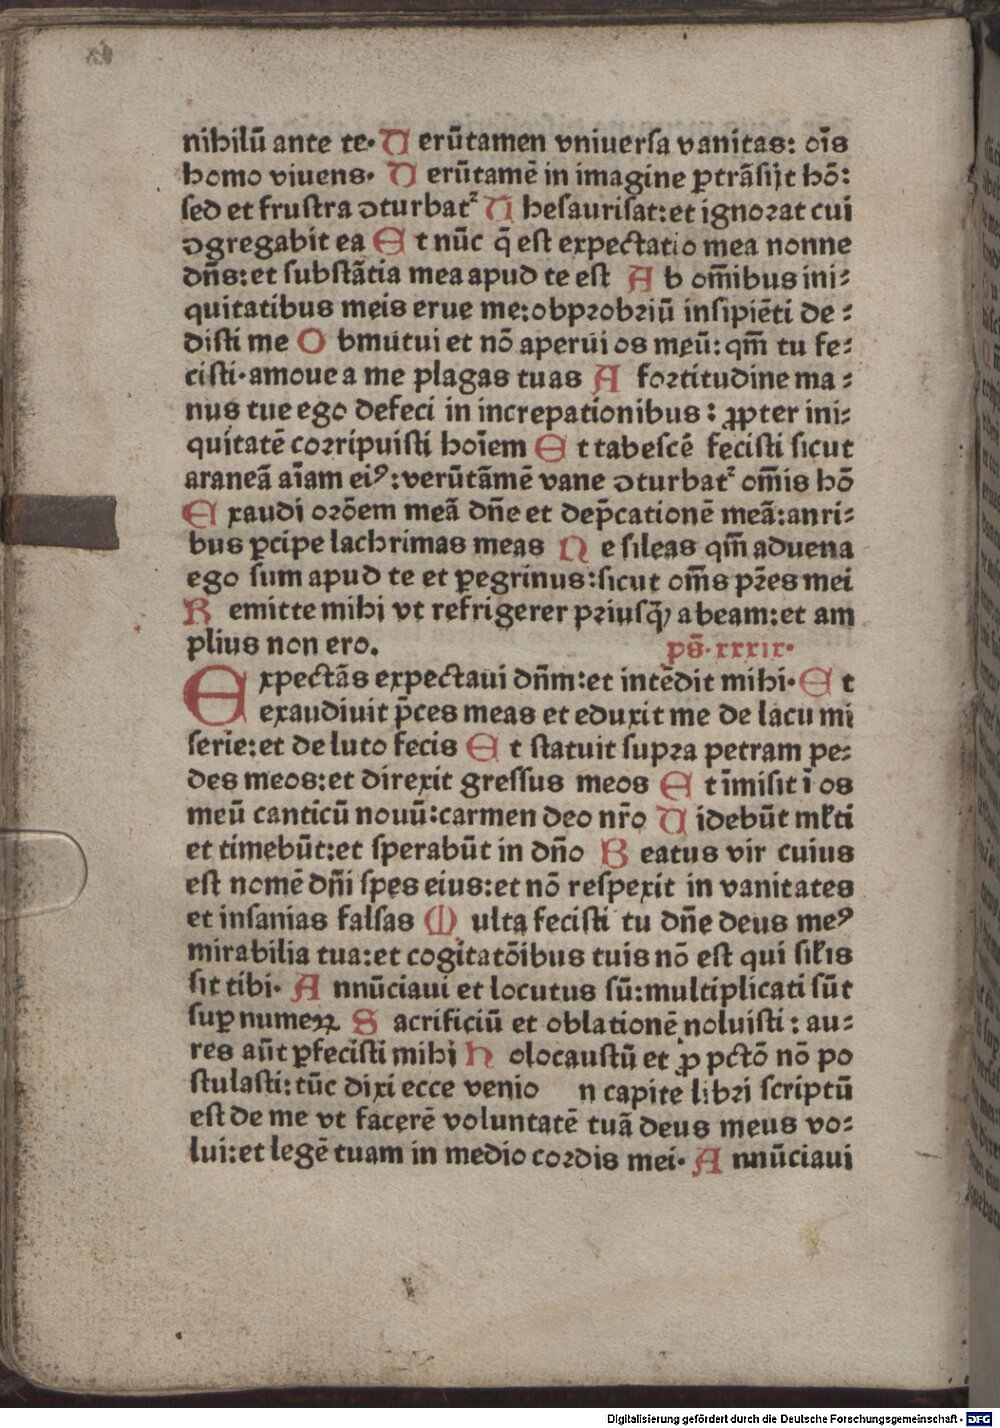 nihilū ante te· U erūtamen vniuersa vanitas: oīs
homo viuens· U erūtamē in imagine ꝑtrāsijt hō:
sed et frustra ↄturbatʳ T hesaurisat: et ignorat cui
ↄgregabit ea E t nūc q̄ est expectatio mea nonne
dn̄s: et substātia mea apud te est A b om̄ibus ini⸗
quitatibus meis erue me: obprobriū insipiēti de⸗
disti me O bmutui et nō aperui os meū: qm̄ tu fe⸗
cisti· amoue a me plagas tuas A fortitudine ma⸗
nus tue ego defeci in increpationibus: ꝓpter ini⸗
quitatē corripuisti hoīem E t tabescē fecisti sicut
araneā aīam eiꝰ: verūtāmē vane ↄturbatʳ om̄is hō
E xaudi orōem meā dn̄e et dep̄cationē meā: auri⸗
bus ꝑcipe lachrimas meas N e sileas qm̄ aduena
ego sum apud te et ꝑegrinus: sicut om̄s pr̄es mei
R emitte mihi vt refrigerer priusq̄ꝫ abeam: et am
plius non ero. ps̄· xxxix·
E xpectās expectaui dn̄m: et intēdit mihi· E t
exaudiuit p̄ces meas et eduxit me de lacu mi
serie: et de luto fecis E t statuit supra petram pe⸗
des meos: et direxit gressus meos E t īmisit ī os
meū canticū nouū: carmen deo nr̄o U idebūt ml̄ti
et timebūt: et sperabūt in dn̄o B eatus vir cuius
est nomē dn̄i spes eius: et nō respexit in vanitates
et insanias falsas M ulta fecisti tu dn̄e deus meꝰ
mirabilia tua: et cogitatōibus tuis nō est qui sil̄is
sit tibi· A nnūciaui et locutus sū: multiplicati sūt
suꝑ numeꝝ S acrificiū et oblationē noluisti: au⸗
res aūt ꝑfecisti mihi H olocaustū et ꝓ pctō nō po
stulasti: tūc dixi ecce venio n capite libri scriptū
est de me vt facerē voluntatē tuā deus meus vo⸗
lui: et legē tuam in medio cordis mei· A nnūciaui
Digitalisierung gefördert durch die Deutsche Forschungsgemeinschaft - DFG